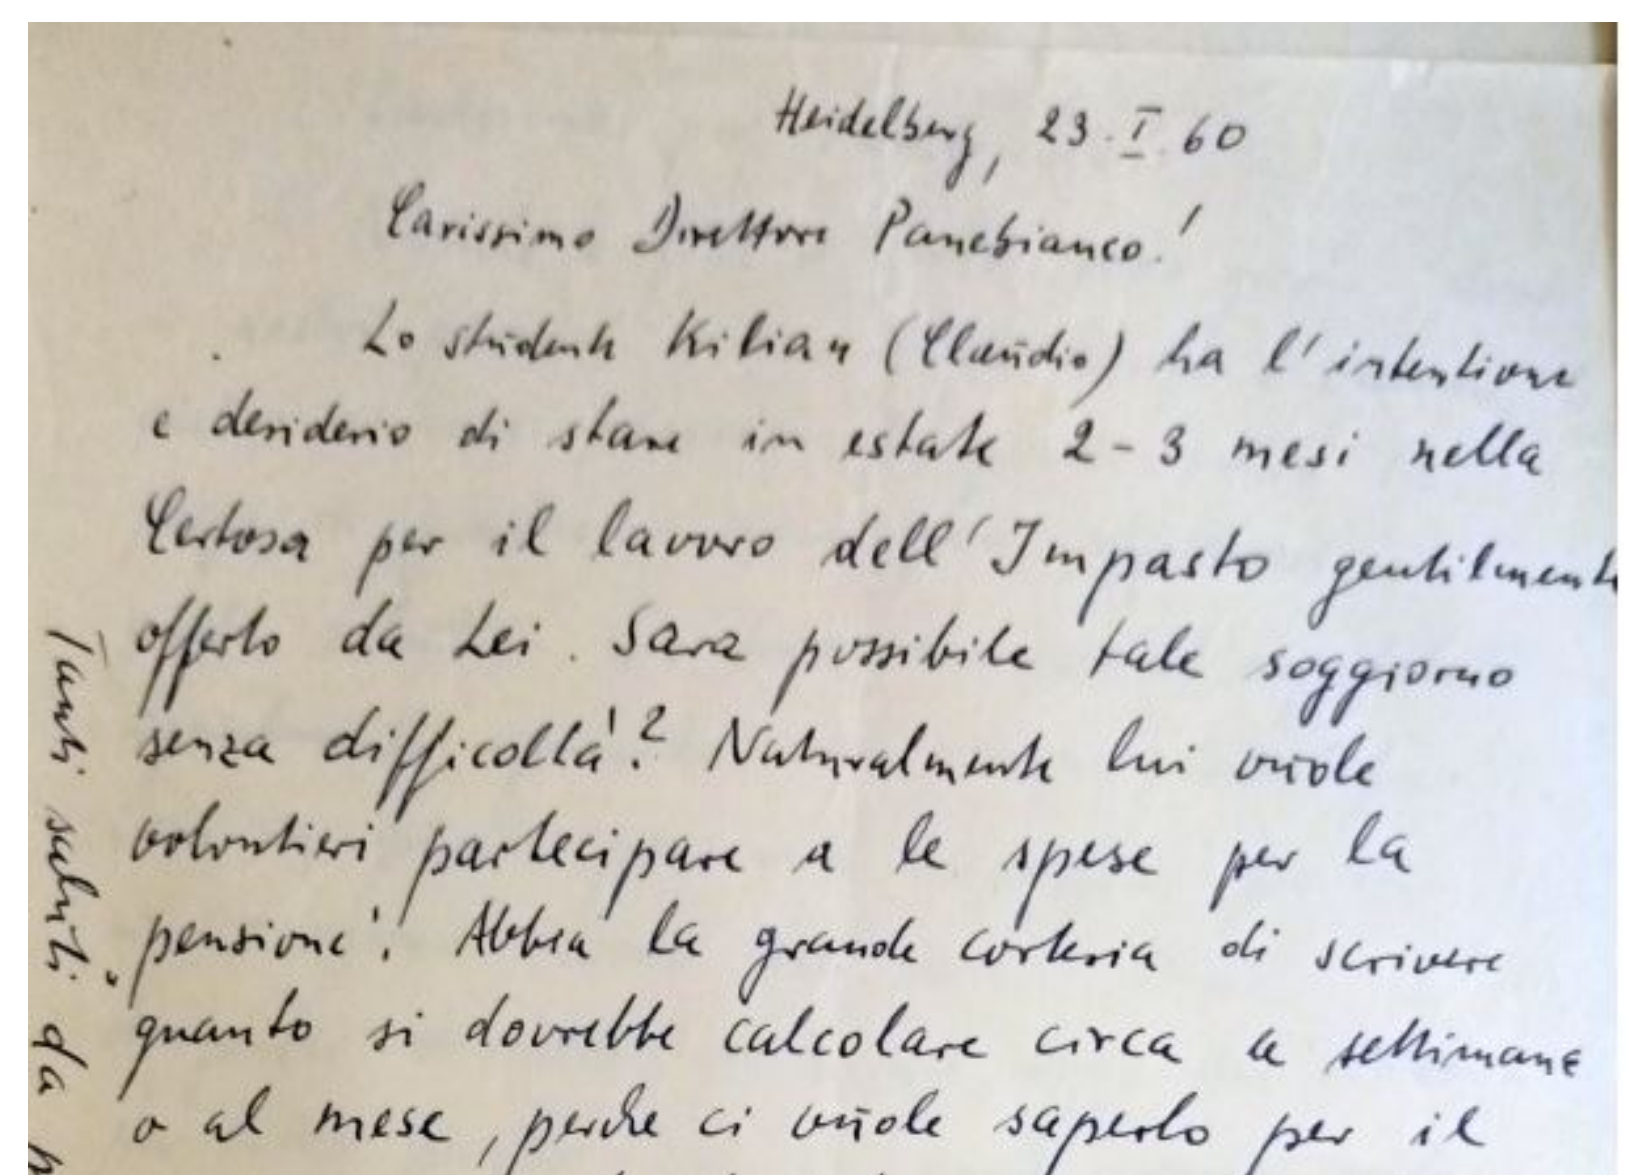 Heidelberg, 23.I.60
Carissimo Direttore Panebianco!
Lo studente Kilian (Claudio) ha l'intentione
e desiderio di stare in estate 2-3 mesi nella
Certosa per il lavoro dell'Impasto gentilmente
offerto da Lei. Sara possibile tale soggiorno
senza difficoltà? Naturalmente lui vuole
volontieri partecipare a le spese per la
"pensione". Abbia la grande corteria di scrivere
quanto si dovrebbe calcolare circa a settimana
o al mese, perche ci vuole saperlo per il
Tanti saluti da